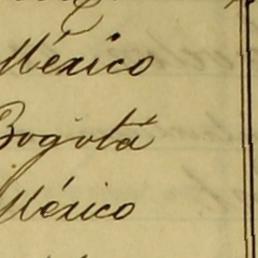 México
Bogotá
México